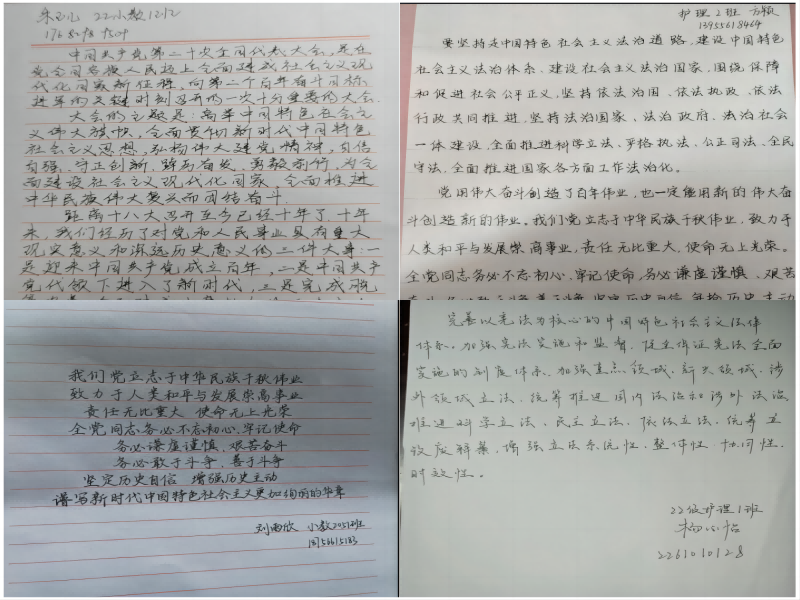 22小教12班
中国共产党第二十次全国代表大会,是在
党全国各族人民迈上全面建成社会主义现
代化国家新征程,向第二个百年奋斗目标
进军的关键时刻召开的一次十分重要的大会.
大会的主题是:高举中国特色社会主
义伟大旗帜,全面贯彻新时代中国特色
社会主义思想,弘扬伟大建党精神,自信
自强、守正创新,踔厉奋发、勇毅前行,为全
面建设社会主义现代化国家、全面推进
中华民族伟大复兴而团结奋斗.
距离十八大召开至今已经十年了,十年
来,我们经历了对党和人民事业具有重大
现实意义和深远历史意义的三件大事:一
是迎来中国共产党成立百年,二是中国共产
党代领下进入了新时代,三是完成脱
护理2班 方颖
13955618464
要坚持走中国特色社会主义法治道路,建设中国特色
社会主义法治体系、建设社会主义法治国家,围绕保障
和促进社会公平正义,坚持依法治国、依法执政、依法
行政共同推进,坚持法治国家、法治政府、法治社会
一体建设,全面推进科学立法、严格执法、公正司法、全民
守法,全面推进国家各方面工作法治化。
党用伟大奋斗创造了百年伟业,也一定能用新的伟大奋
斗创造新的伟业。我们党立志于中华民族千秋伟业,致力于
人类和平与发展崇高事业,责任无比重大,使命无上光荣。
全党同志务必不忘初心、牢记使命,务必谦虚谨慎、艰苦
我们党立志于中华民族千秋伟业
致力于人类和平与发展崇高事业
责任无比重大 使命无上光荣
全党同志务必不忘初心、牢记使命
务必谦虚谨慎、艰苦奋斗
务必敢于斗争、善于斗争
坚定历史自信 增强历史主动
谱写新时代中国特色社会主义更加绚丽的华章
刘雨欣 小教2051班
完善以宪法为核心的中国特色社会主义法律
体系。加强宪法实施和监督,健全保证宪法全面
实施的制度体系。加强重点领域、新兴领域、涉
外领域立法,统筹推进国内法治和涉外法治
推进科学立法、民主立法、依法立法,统筹立
改废解纂,增强立法系统性、整体性、协同性、
时效性。
22级护理1班
杨心怡
2261010128